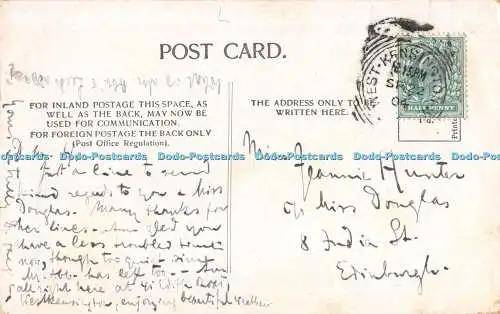 POST CARD.
FOR INLAND POSTAGE THIS SPACE, AS
WELL AS THE BACK, MAY NOW BE
USED FOR COMMUNICATION.
FOR FOREIGN POSTAGE THE BACK ONLY
(Post Office Regulation).
THE ADDRESS ONLY TO BE
WRITTEN HERE.
WEST·KENSINGTON
12.15PM
SP
04
HALF PENNY
Printed
Just a line to send
kind regards to you & Miss
Douglas. Many thanks for
her lines. Am glad you
have a less troubled
now, though too quiet since
has left too. Am
all right here at 41 Edith Road,
West Kensington, enjoying beautiful weather
Miss Jeannie Hunter
c/o Miss Douglas
8 India St.
Edinburgh.
Dodo-Postcards Dodo-Postcards Dodo-Postcards Dodo-Postcards